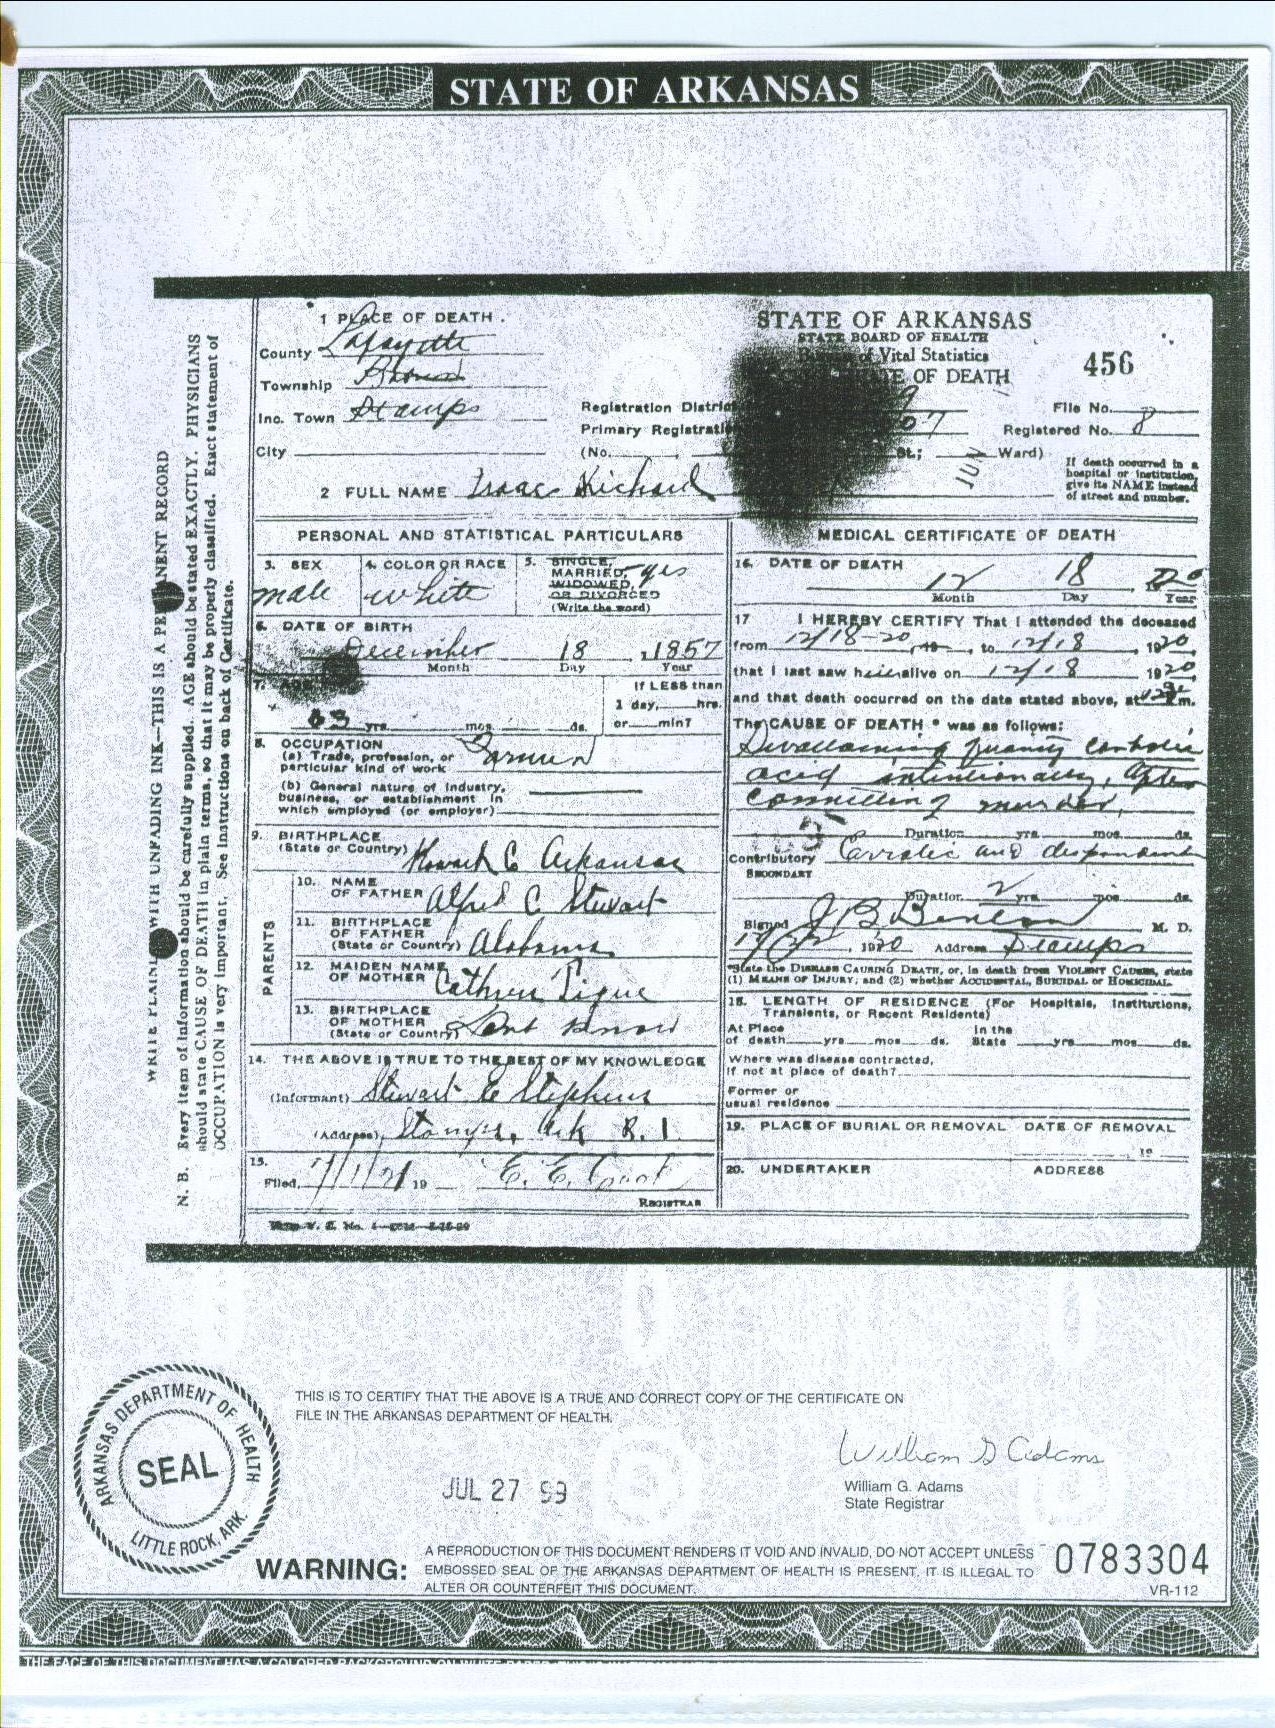 STATE OF ARKANSAS
1 PLACE OF DEATH.
County Lafayette
Township
Inc. Town Stamps
City
STATE OF ARKANSAS
STATE BOARD OF HEALTH
of Vital Statistics
OF DEATH
456
Registration District 9
File No.
Primary Registrati 07
Registered No. 8
(No. St.; Ward)
If death occurred in a
hospital or institution,
give its NAME instead
of street and number.
2 FULL NAME Isaac Richard
PERSONAL AND STATISTICAL PARTICULARS
3. SEX
male
4. COLOR OR RACE
white
5. SINGLE,
MARRIED, yes
WIDOWED,
OR DIVORCED
(Write the word)
6. DATE OF BIRTH
December 18, 1857
Month Day Year
7.
If LESS than
1 day, hrs.
63 yrs. mos. ds.
or min?
8. OCCUPATION
(a) Trade, profession, or
particular kind of work Farmer
(b) General nature of industry,
business, or establishment in
which employed (or employer)
9. BIRTHPLACE
(State or Country) Howard C Arkansas
PARENTS
10. NAME
OF FATHER Alfred C Stewart
11. BIRTHPLACE
OF FATHER
(State or Country) Alabama
12. MAIDEN NAME
OF MOTHER Cathren Tigue
13. BIRTHPLACE
OF MOTHER
(State or Country) Dont know
14. THE ABOVE IS TRUE TO THE BEST OF MY KNOWLEDGE
(Informant) Stewart E Stephens
(Address) Stamps, Ark R. 1
15.
Filed, 1/1/21 19 E. E.
REGISTRAR
MEDICAL CERTIFICATE OF DEATH
16. DATE OF DEATH
12 18 20
Month Day Year
17 I HEREBY CERTIFY That I attended the deceased
from 12/18-20, 19 , to 12/18, 1920,
that I last saw h alive on 12/18 1920,
and that death occurred on the date stated above, at m.
The CAUSE OF DEATH * was as follows:
Swallowing carbolic
acid intentionally, after
committing murder,
Duration yrs. mos. ds.
Contributory Erratic and despondent
SECONDARY
Duration 2 yrs. mos. ds.
Signed J B M. D.
12/22, 1920 Address Stamps
*State the DISEASE CAUSING DEATH, or, in death from VIOLENT CAUSES, state
(1) MEANS OF INJURY; and (2) whether ACCIDENTAL, SUICIDAL or HOMICIDAL.
18. LENGTH OF RESIDENCE (For Hospitals, Institutions,
Transients, or Recent Residents)
At Place In the
of death yrs. mos. ds. State yrs. mos. ds.
Where was disease contracted,
if not at place of death?
Former or
usual residence
19. PLACE OF BURIAL OR REMOVAL DATE OF REMOVAL
19
20. UNDERTAKER ADDRESS
WRITE PLAINLY WITH UNFADING INK—THIS IS A PERMANENT RECORD
N. B. Every item of information should be carefully supplied. AGE should be stated EXACTLY. PHYSICIANS
should state CAUSE OF DEATH in plain terms, so that it may be properly classified. Exact statement of
OCCUPATION is very important. See instructions on back of Certificate.
ARKANSAS DEPARTMENT OF HEALTH
SEAL
LITTLE ROCK, ARK.
THIS IS TO CERTIFY THAT THE ABOVE IS A TRUE AND CORRECT COPY OF THE CERTIFICATE ON
FILE IN THE ARKANSAS DEPARTMENT OF HEALTH.
JUL 27 93
William G Adams
William G. Adams
State Registrar
WARNING:
A REPRODUCTION OF THIS DOCUMENT RENDERS IT VOID AND INVALID, DO NOT ACCEPT UNLESS
EMBOSSED SEAL OF THE ARKANSAS DEPARTMENT OF HEALTH IS PRESENT. IT IS ILLEGAL TO
ALTER OR COUNTERFEIT THIS DOCUMENT.
0783304
VR-112
THE FACE OF THIS DOCUMENT HAS A COLORED BACKGROUND ON WHITE